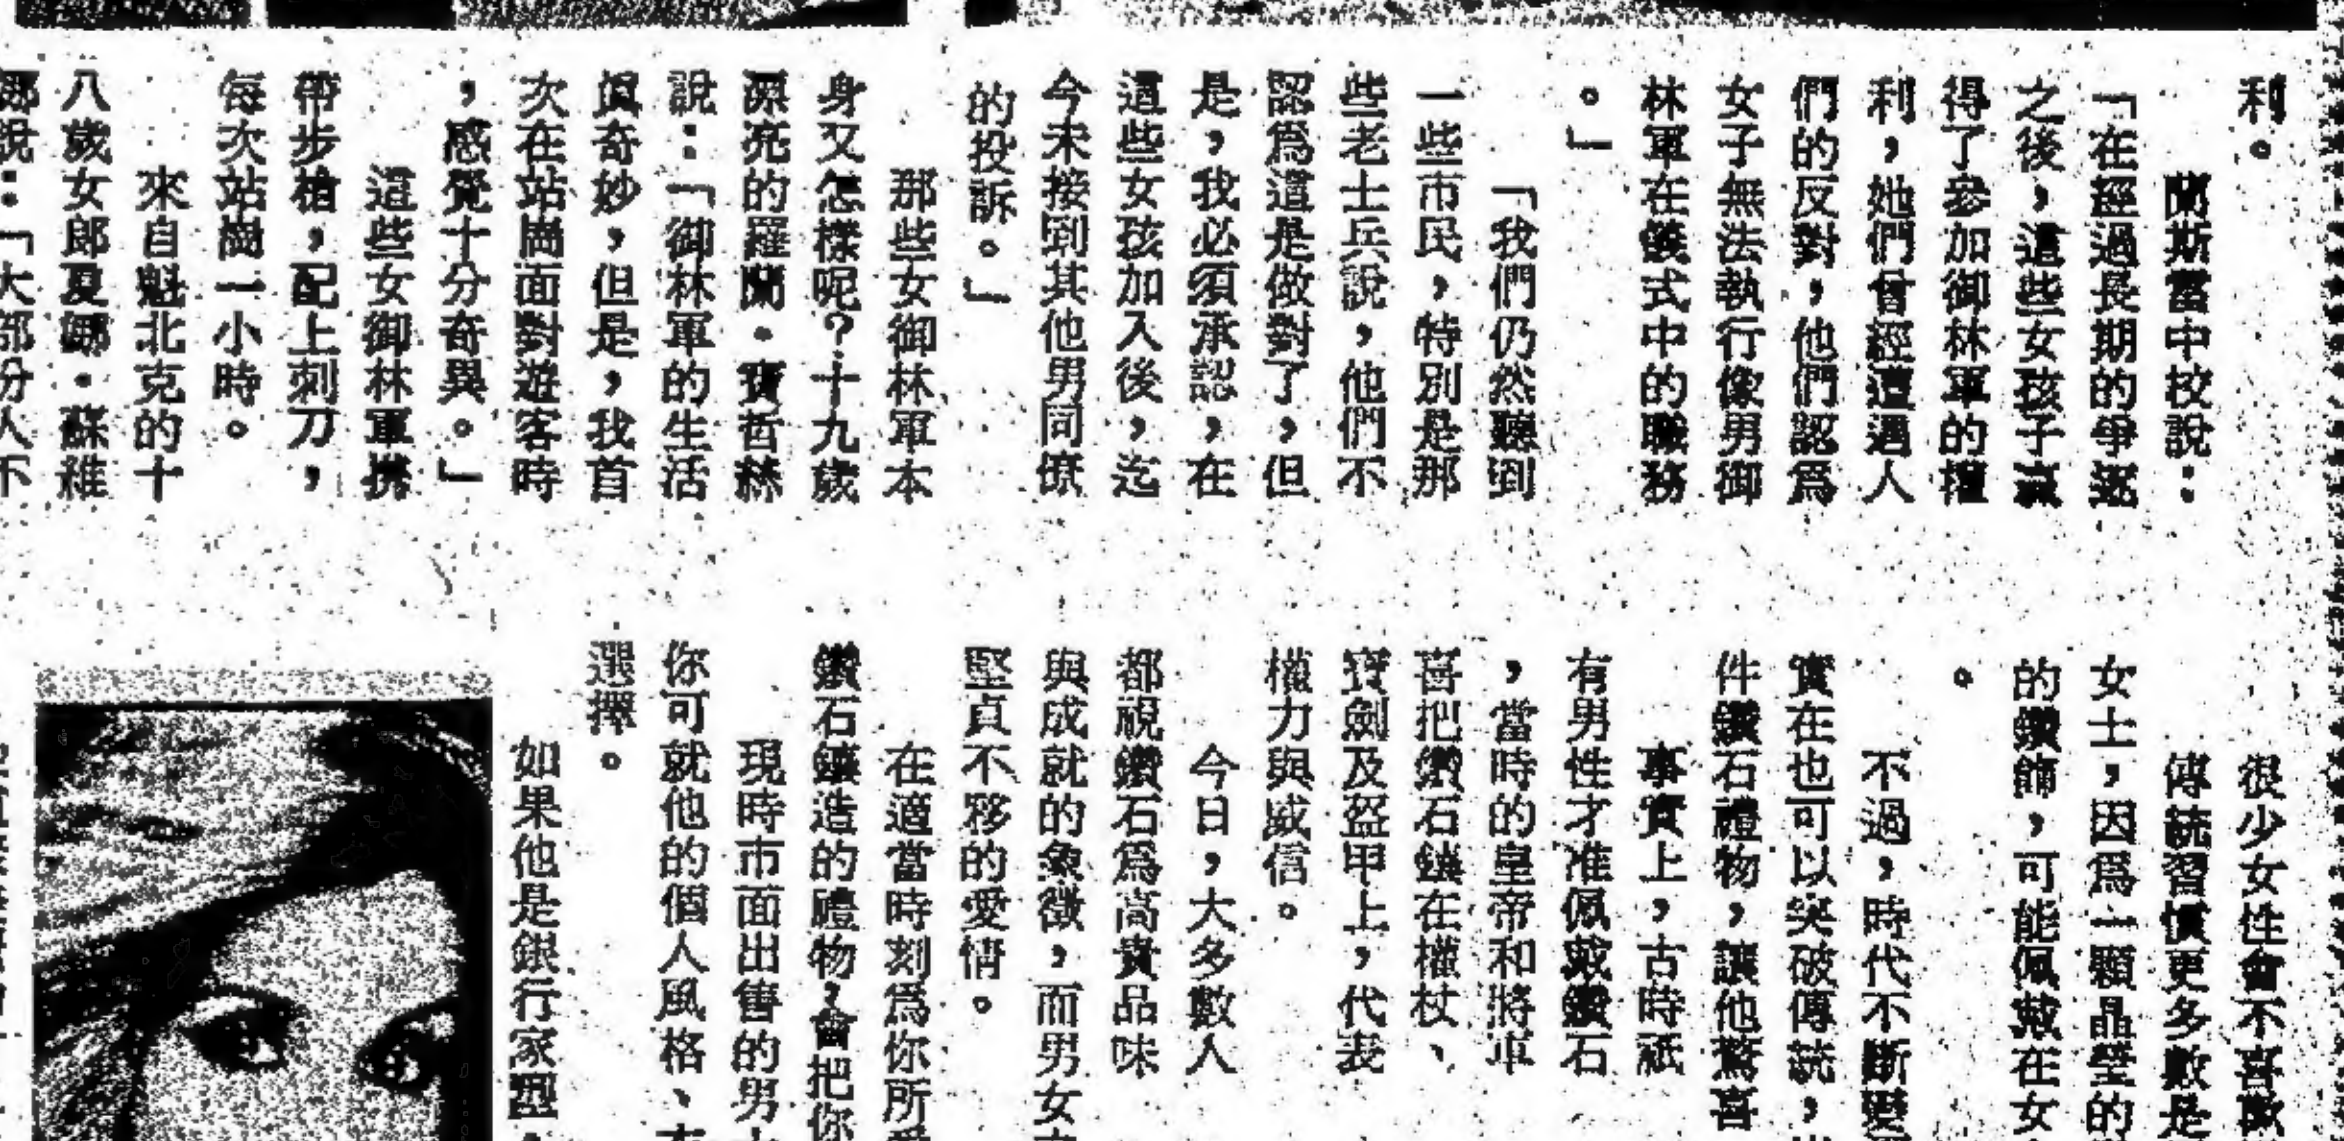 利。
蘭斯當中校說：
「在經過長期的爭
之後，這些女孩子贏
得了參加御林軍的權
利，她們曾經遭遇人
們的反對，他們認爲
女子無法執行像男御
林軍在儀式中的職務
。」
「我們仍然聽到
一些市民，特別是那
些老士兵說，他們不
認爲這是做對了，但
是，我必須承認，在
這些女孩加入後，迄
今未接到其他男同僚
的投訴。」
那些女御林軍本
身又怎樣呢？十九歲
漂亮的羅蘭·寶哲林
說：「御林軍的生活
眞奇妙，但是，我首
次在站崗面對遊客時
，感覺十分奇異。」
這些女御林軍携
帶步槍，配上刺刀，
每次站崗一小時。
來自魁北克的十
八歲女郎夏娜·蘇維
娜說：「大部份人不
很少女性會不喜歡
傳統習慣更多數是
女士，因爲一顆晶瑩的
的鑽飾，可能佩戴在女
。
不過，時代不斷變
實在也可以突破傳統，
件鑽石禮物，讓他驚喜
事實上，古時祗
有男性才准佩戴鑽石
，當時的皇帝和將軍
喜把鑽石鑲在權杖、
寶劍及盔甲上，代表
權力與威信。
今日，大多數人
都視鑽石爲高貴品味
與成就的象徵，而男女
堅貞不移的愛情。
在適當時刻爲你所愛
鑽石鑲造的禮物，會把你
現時市面出售的男
你可就他的個人風格、
選擇。
如果他是銀行家型，